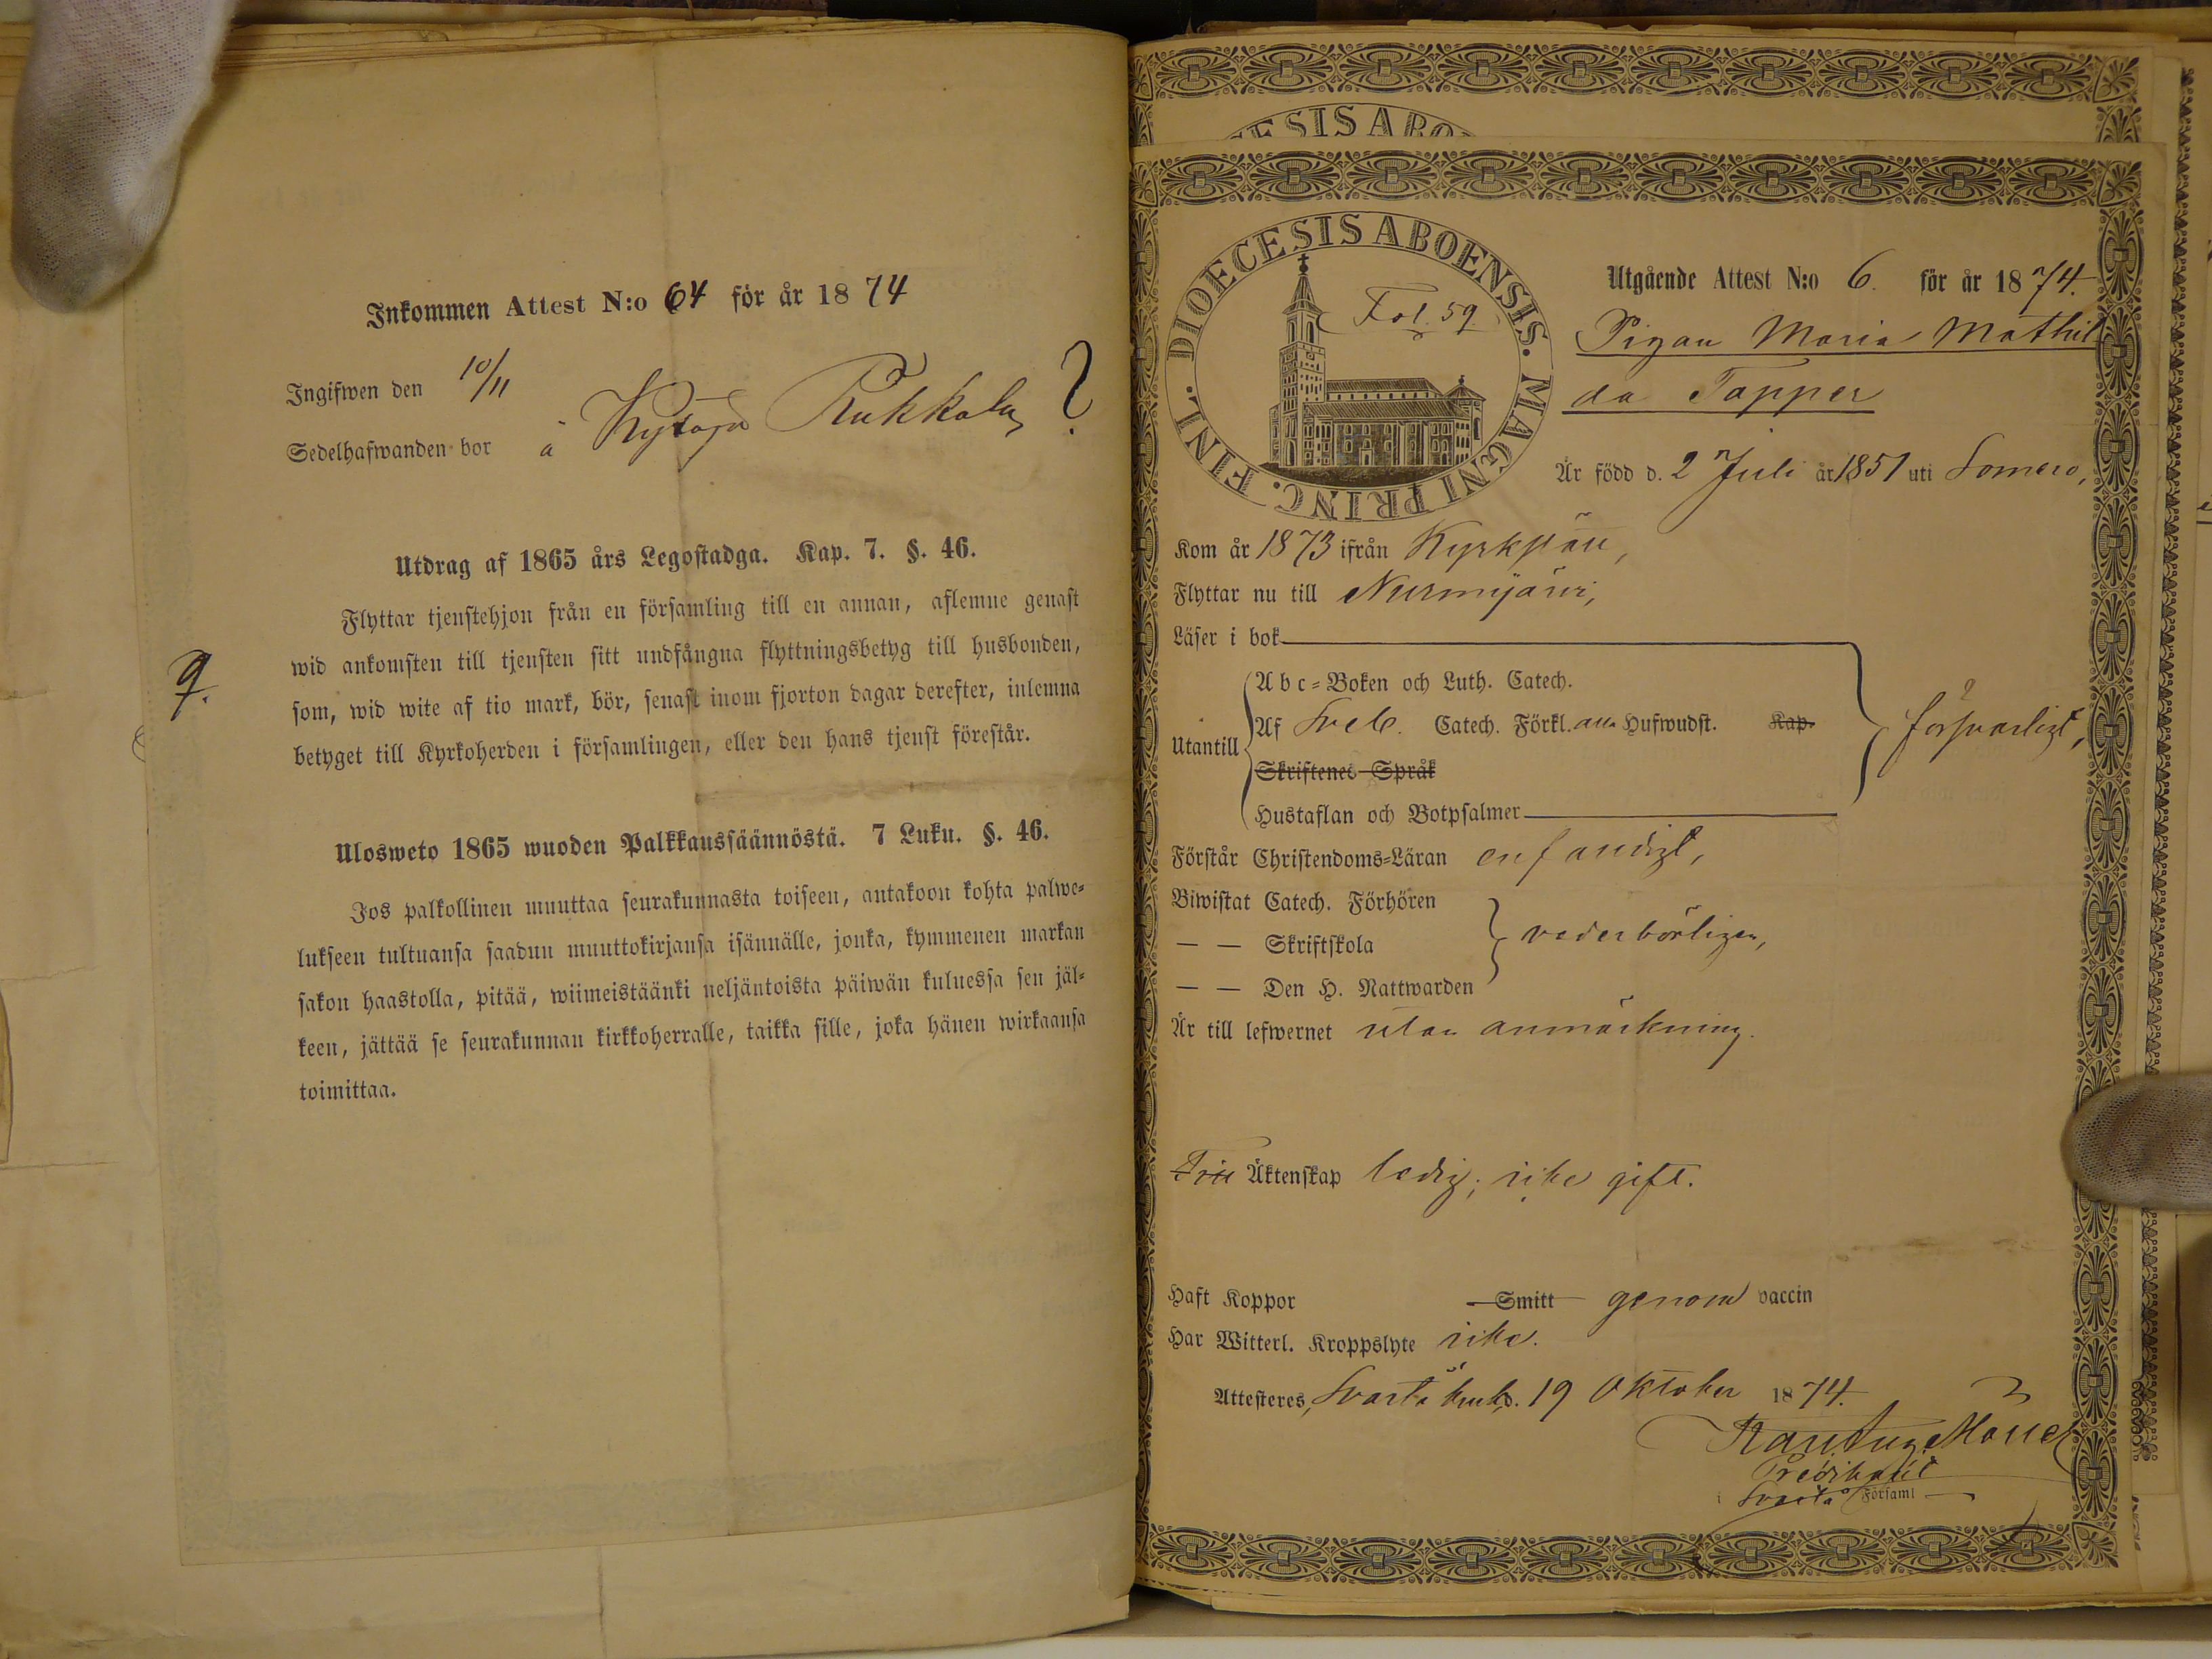 Inkommen Attest N:o 64 för år 1874
Ingifwen den 10/11
Sedelhafwanden bor å Kytäjä Rukkola ?
Utdrag af 1865 års Legostadga. Kap. 7. §. 46.
Flyttar tjenstehjon från en församling till en annan, aflemne genast
wid ankomsten till tjensten sitt undfångna flyttningsbetyg till husbonden,
som, wid wite af tio mark, bör, senast inom fjorton dagar derefter, inlemna
betyget till Kyrkoherden i församlingen, eller den hans tjenst förestår.
9.
Ulosweto 1865 wuoden Palkkaussäännöstä. 7 Luku. §. 46.
Jos palkollinen muuttaa seurakunnasta toiseen, antakoon kohta palwe-
lukseen tultuansa saadun muuttokirjansa isännälle, jonka, kymmenen markan
sakon haastolla, pitää, wiimeistäänki neljäntoista päiwän kuluessa sen jäl-
keen, jättää se seurakunnan kirkkoherralle, taikka sille, joka hänen wirkaansa
toimittaa.
DIOECESIS ABOENSIS. MAGNI PRINC. FINL.
Fol. 59.
Utgående Attest N:o 6. för år 1874.
Pigan Maria Mathil
da Tapper
Är född d. 2 Juli år 1851 uti Somero,
Kom år 1873 ifrån Kyrkslätt,
Flyttar nu till Nurmijärvi,
Läser i bok
Utantill
Abc-Boken och Luth. Catech.
Af Sveb. Catech. Förkl. alla Hufwudst. Kap.
Skriftenes Språk
Hustaflan och Botpsalmer
försvarligt,
Förstår Christendoms-Läran enfaldigt,
Biwistat Catech. Förhören
— — Skriftskola
— — Den H. Nattwarden
vederbörligen,
Är till lefwernet utan anmärkning.
Till Äktenskap ledig; icke gift.
Haft Koppor Smitt genom vaccin
Har Witterl. Kroppslyte icke.
Attesteres, Svartå bruk d. 19 Oktober 1874.
Predikant
i Svartå Församl